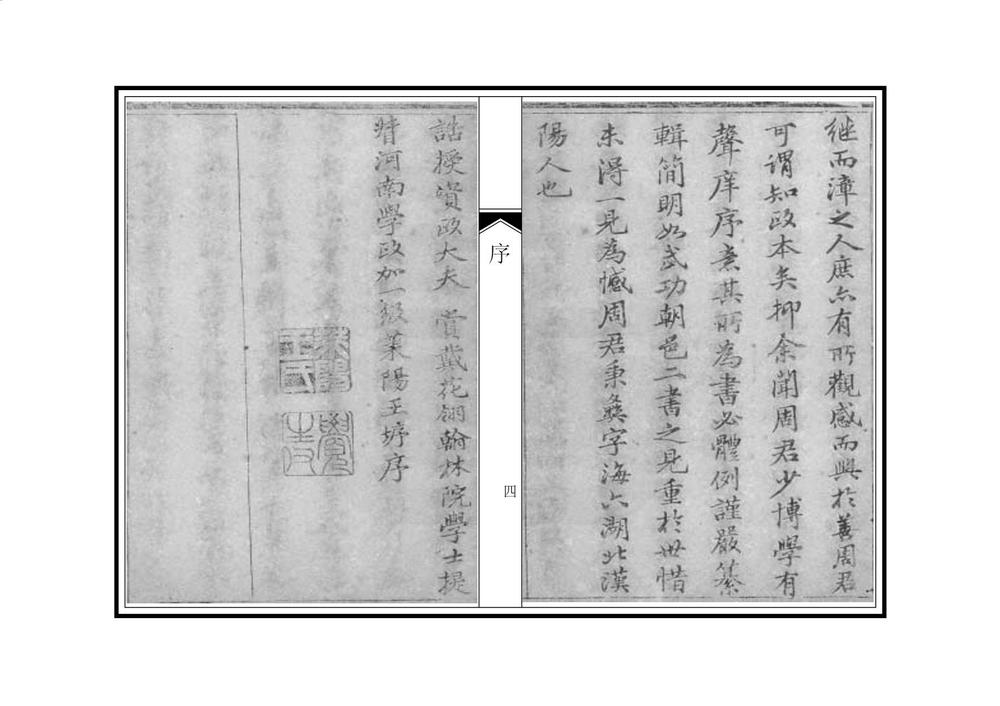 继而漳之人庶亦有所觀感而興於善周君
可谓知政本矣抑余聞周君少博學有
聲庠序意其所為書必體例謹嚴纂
輯简明如武功朝邑二書之見重於世惜
未得一見為憾周君秉彝字海六湖北漢
陽人也
序
四
誥授資政大夫 賞戴花翎翰林院學士提
督河南學政加一級莱陽王㙷序